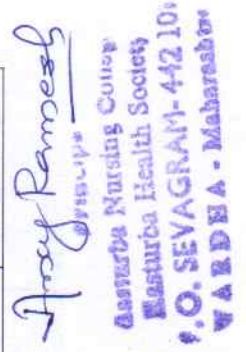 Ramesh
Principal
Kasturba Nursing College
Kasturba Health Society
P.O. SEVAGRAM-442 10
WARDHA - Maharashtra